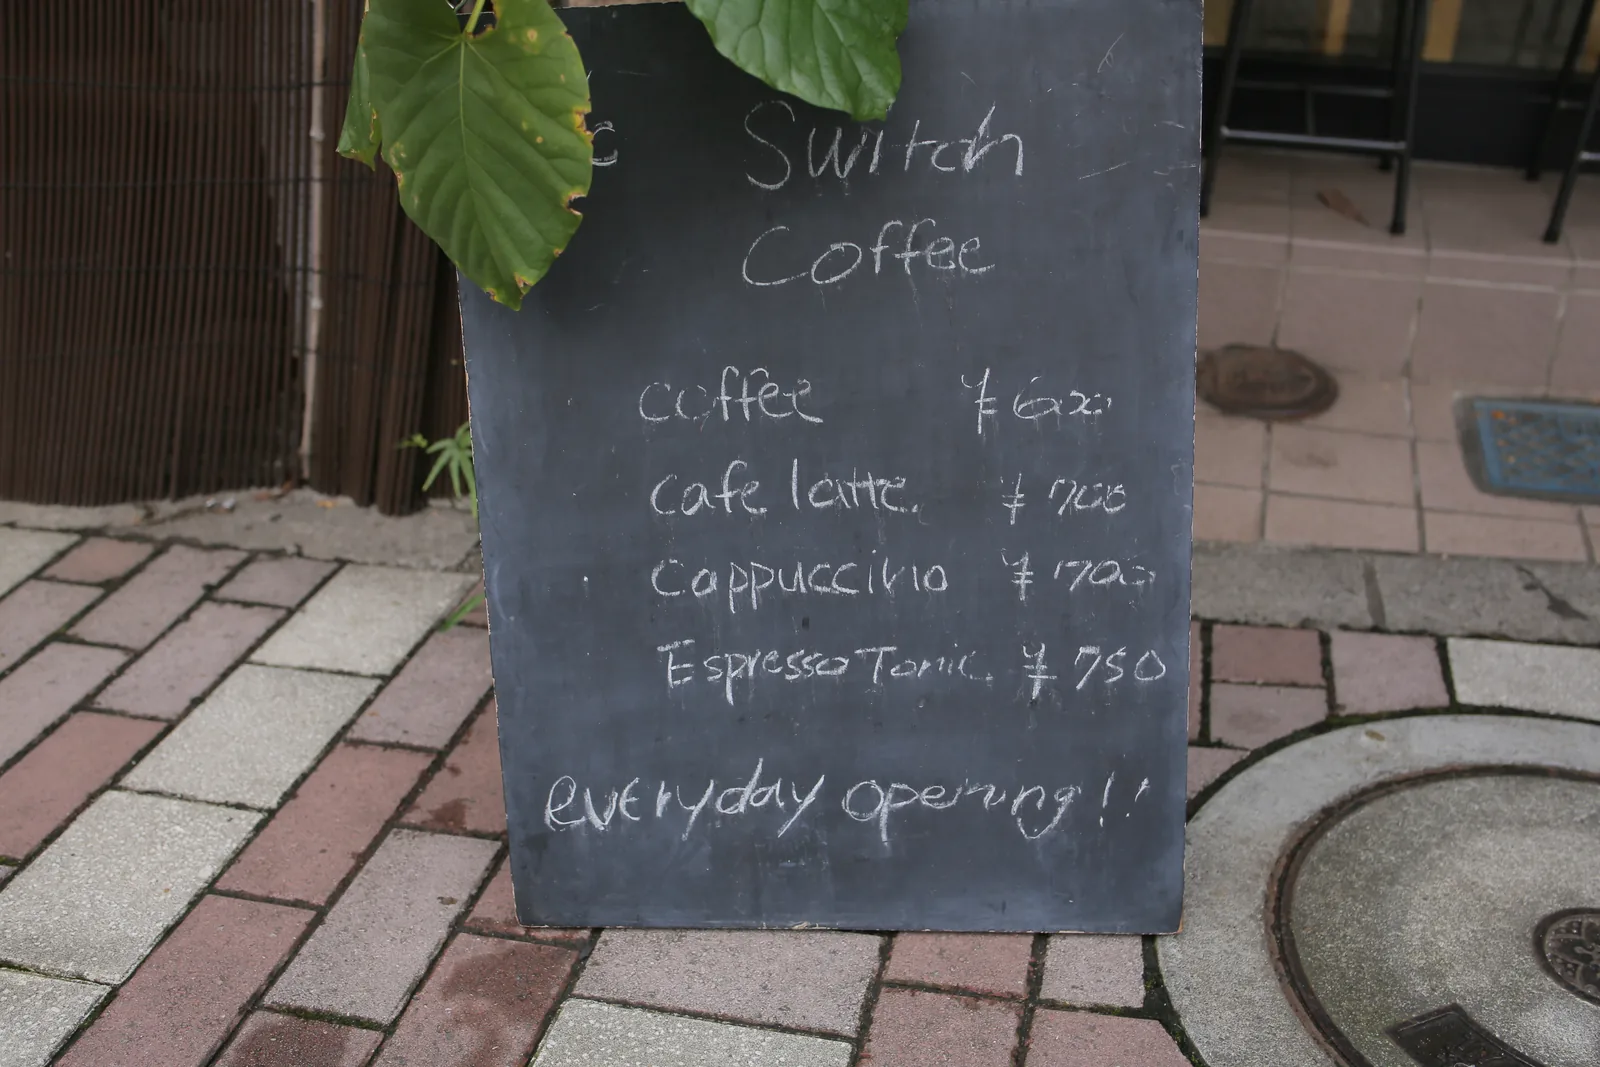 Switch
Coffee
coffee ¥600
cafe latte. ¥700
Cappuccino ¥700
Espresso Tonic. ¥750
everyday opening!!